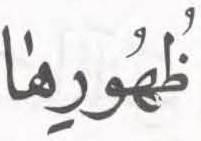 ظُهُورِهَا